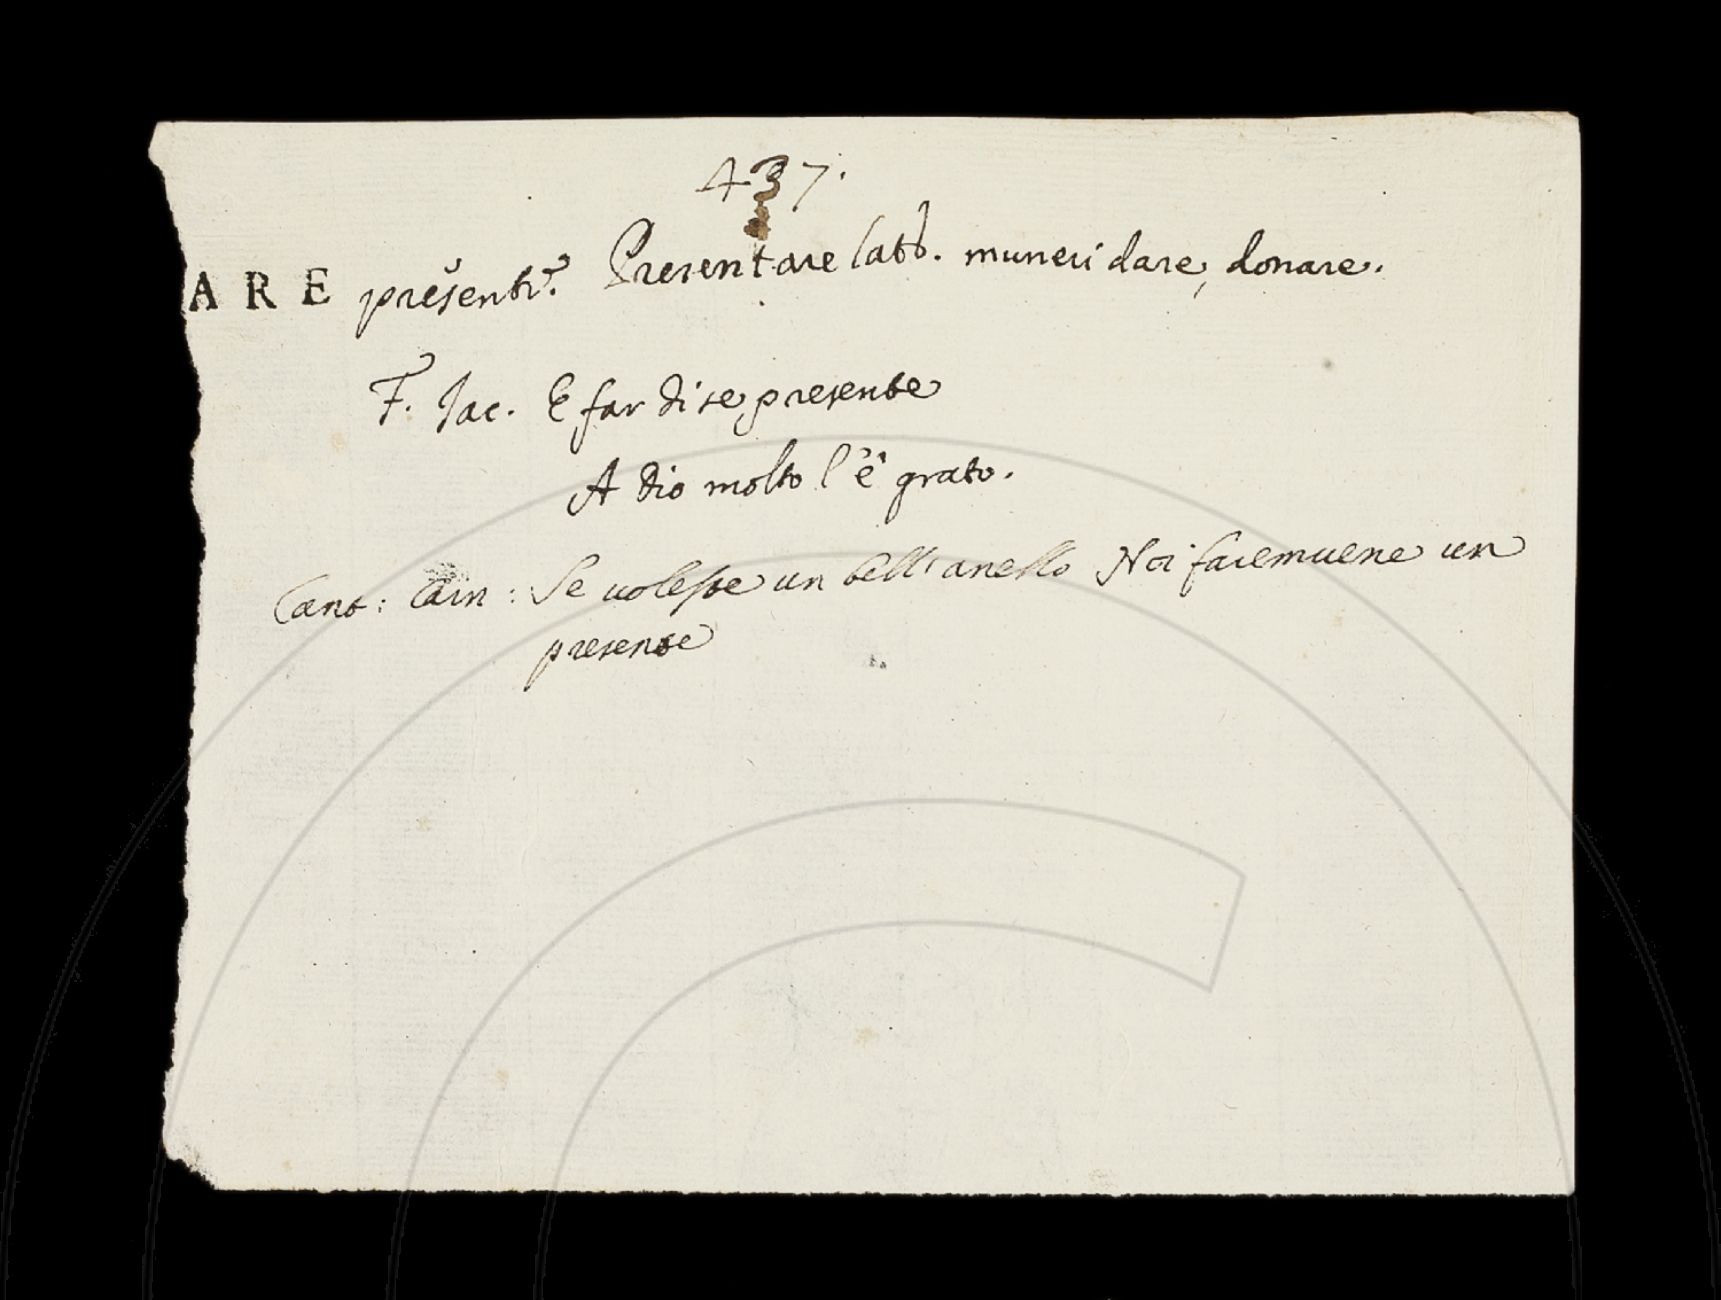 437.
ARE presente. Presentare latt. muneri dare, donare.
F. Jac. E far di se presente
A Dio molto l'è grato.
Cant: Carn: Se uoleste un bell'anello Noi faremuene un
presente